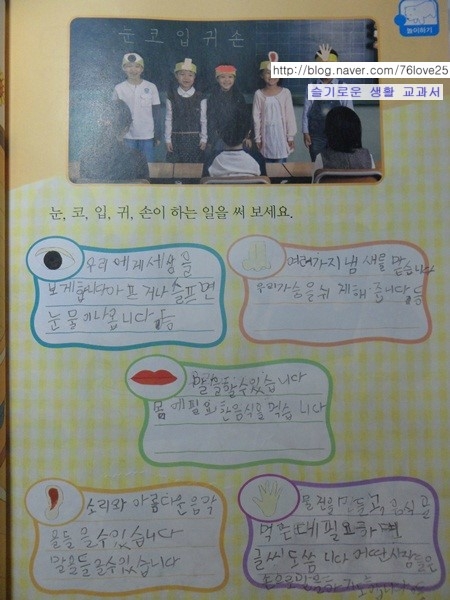 놀이하기
눈 코 입 귀 손
http://blog.naver.com/76love25
슬기로운 생활 교과서
눈, 코, 입, 귀, 손이 하는 일을 써 보세요.
우리에게 세상을
보게합니다 아프거나 슬프면
눈물이나옵니다 등
여러가지 냄새를 맡습니다
우리가 숨을쉬게해줍니다 등
말을할수있습니다
몸에필요한음식을먹습니다
소리와 아름다운음악
을들을수있습니다
말을들을수있습니다
물건을 만들고, 음식을
먹는데필요하며
글씨도씁니다 어떤사람들은
손으로말을하기도합니다 등